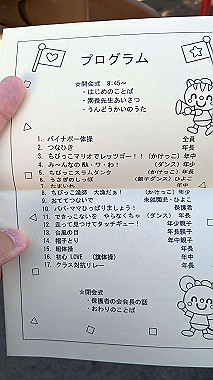 プログラム
☆開会式 8:45～
・はじめのことば
・園長先生あいさつ
・うんどうかいのうた
1. パイナポー体操 全員
2. つなひき 年長
3. ちびっこマリオでレッツゴー！！ (かけっこ) 年中
4. み～んなのWA・ワ・わ！ (ダンス) 年少
5. ちびっこスラムダンク (かけっこ) 年長
6. うさぎのしっぽ (親子ダンス) ひよこ
7. たまいれ 年中
8. ちびっこ漁師 大漁だぁ！ (かけっこ) 年少
9. おててつないで 未就園児・ひよこ
10. パパ・ママひっぱりましょう！ 保護者
11. できっこないを やらなくちゃ (ダンス) 年長
12. 走って見つけてタッチギュー！ 年少親子
13. 台風の目 年長親子
14. 帽子とり 年中親子
15. 組体操 年長
16. 初心LOVE (旗体操) 年中
17. クラス対抗リレー 年長
☆閉会式
・保護者の会会長の話
・おわりのことば